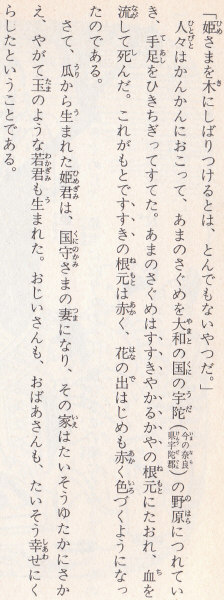 「姫さまを木にしばりつけるとは、とんでもないやつだ。」
人々はかんかんにおこって、あまのさぐめを大和の国の宇陀（今の奈良県宇陀郡）の野原につれてい
き、手足をひきちぎってすてた。あまのさぐめはすすきやかるかやの根元にたおれ、血を
流して死んだ。これがもとですすきの根元は赤く、花の出はじめも赤く色づくようになっ
たのである。
さて、瓜から生まれた姫君は、国守さまの妻になり、その家はたいそうゆたかにさか
え、やがて玉のような若君も生まれた。おじいさんも、おばあさんも、たいそう幸せにく
らしたということである。